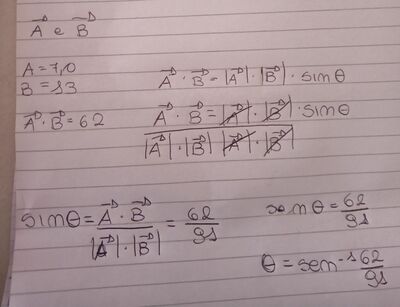 A⃗ e B⃗
A = 7,0
B = 13
A⃗ · B⃗ = 62
A⃗ · B⃗ = |A⃗| · |B⃗| · sinθ
A⃗ · B⃗ = |A⃗| · |B⃗| · sinθ
|A⃗| · |B⃗| |A⃗| · |B⃗|
sinθ = A⃗ · B⃗ / |A⃗| · |B⃗| = 62/91
senθ = 62/91
θ = sen⁻¹ 62/91